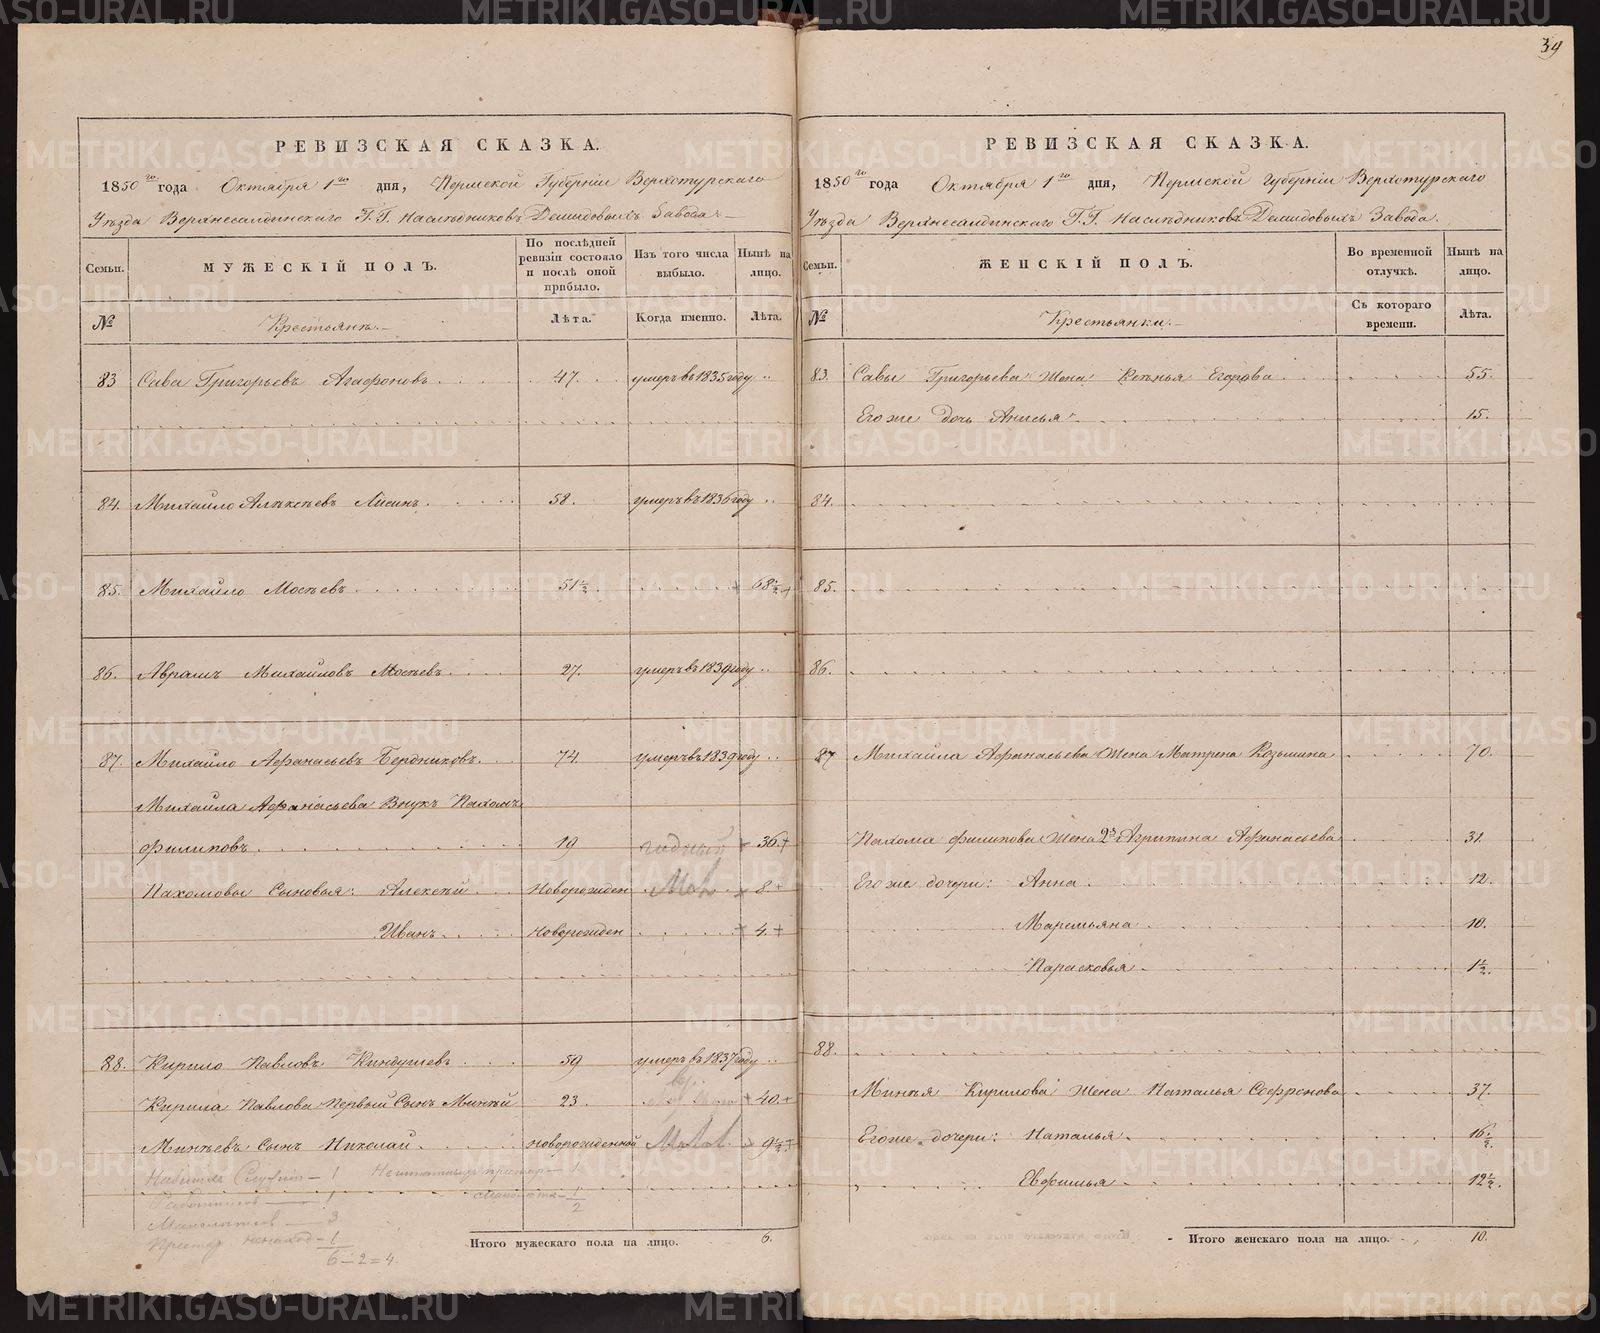 39
РЕВИЗСКАЯ СКАЗКА.
1850го года Октября 1го дня, Пермской Губерніи Верхотурскаго
Уѣзда Верхнесалдинскаго Г.Г. Наслѣдниковъ Демидовыхъ Завода
Семьи. МУЖЕСКІЙ ПОЛЪ. По послѣдней ревизіи состояло и послѣ оной прибыло. Изъ того числа выбыло. Нынѣ на лицо.
№ Крестьянъ. Лѣта. Когда именно. Лѣта.
83 Сава Григорьевъ Агафоновъ 47. умеръ въ 1835 году
84. Михайло Алексѣевъ Лисинъ 58. умеръ въ 1836 году
85. Михайло Мосѣевъ 51½ 68½
86. Аврамъ Михайловъ Мосѣевъ 27. умеръ въ 1839 году
87. Михайло Афанасьевъ Бердниковъ 74 умеръ въ 1839 году
Михайла Афанасьева Внукъ Пахомъ
Филиповъ 19 годный 36
Пахомовы Сыновья: Алексѣй Новорожден 8
Иванъ Новорожден 4
88. Кирило Павловъ Киндушевъ 59 умеръ въ 1837 году
Кирила Павлова Первый Сынъ Минѣй 23. 40
Минѣевъ Сынъ Николай новорожденной 9½
1
1
3
1
6-2=4.
Итого мужескаго пола на лицо. 6.
РЕВИЗСКАЯ СКАЗКА.
1850го года Октября 1го дня, Пермской Губерніи Верхотурскаго
Уѣзда Верхнесалдинскаго Г.Г. Наслѣдниковъ Демидовыхъ Завода.
Семьи. ЖЕНСКІЙ ПОЛЪ. Во временной отлучкѣ. Нынѣ на лицо.
№ Крестьянки. Съ котораго времени. Лѣта.
83. Савы Григорьева Жена Ксенья Егорова 55.
Его же дочь Анисья 15.
84.
85.
86.
87 Михайла Афанасьева Жена Матрена Козьмина 70.
Пахома Филипова Жена 2я Агрипина Афанасьева 31.
Его же дочери: Анна 12.
Маремьяна 10.
Парасковья 1½.
88.
Минѣя Кирилова Жена Наталья Софронова 37.
Его же дочери: Наталья 16½
Евфимья 12½.
Итого женскаго пола на лицо. 10.
METRIKI.GASO-URAL.RU